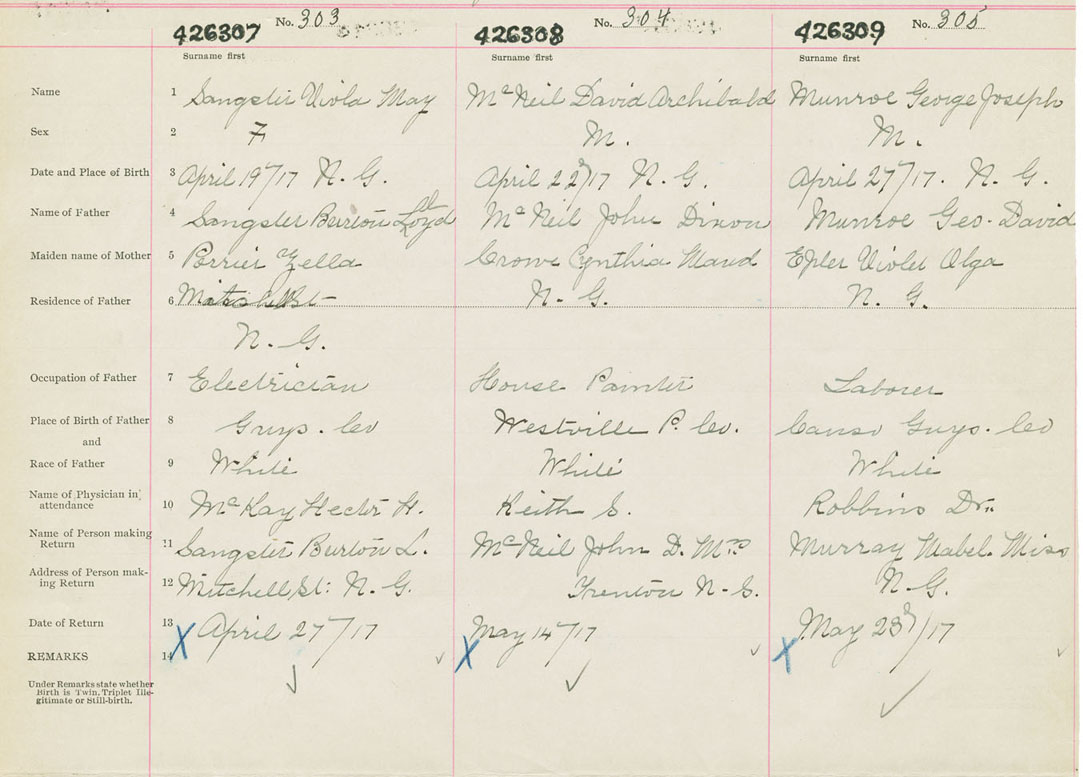 No. 303 No. 304 No. 305
426307 426308 426309
Surname first Surname first Surname first
Name 1 Sangster Viola May McNeil David Archibald Munroe George Joseph
Sex 2 F M. M.
Date and Place of Birth 3 April 19/17 N. G. April 22d/17 N. G. April 27/17. N. G.
Name of Father 4 Sangster Burton Lloyd McNeil John Dixon Munroe Geo. David
Maiden name of Mother 5 Perrier Zella Crowe Cynthia Maud Epler Violet Olga
Residence of Father 6 Mitchell St N. G. N. G.
N. G.
Occupation of Father 7 Electrician House Painter Laborer
Place of Birth of Father 8 Guys. Co Westville P. Co. Canso Guys. Co
and
Race of Father 9 White White White
Name of Physician in attendance 10 McKay Hector H. Keith S. Robbins Dr.
Name of Person making Return 11 Sangster Burton L. McNeil John D. Mrs Murray Mabel. Miss
Address of Person mak-ing Return 12 Mitchell St: N. G. Trenton N. S. N. G.
Date of Return 13 X April 27/17 May 14/17 May 23d/17
REMARKS 14 X X
Under Remarks state whether
Birth is Twin, Triplet Ille-
gitimate or Still-birth.